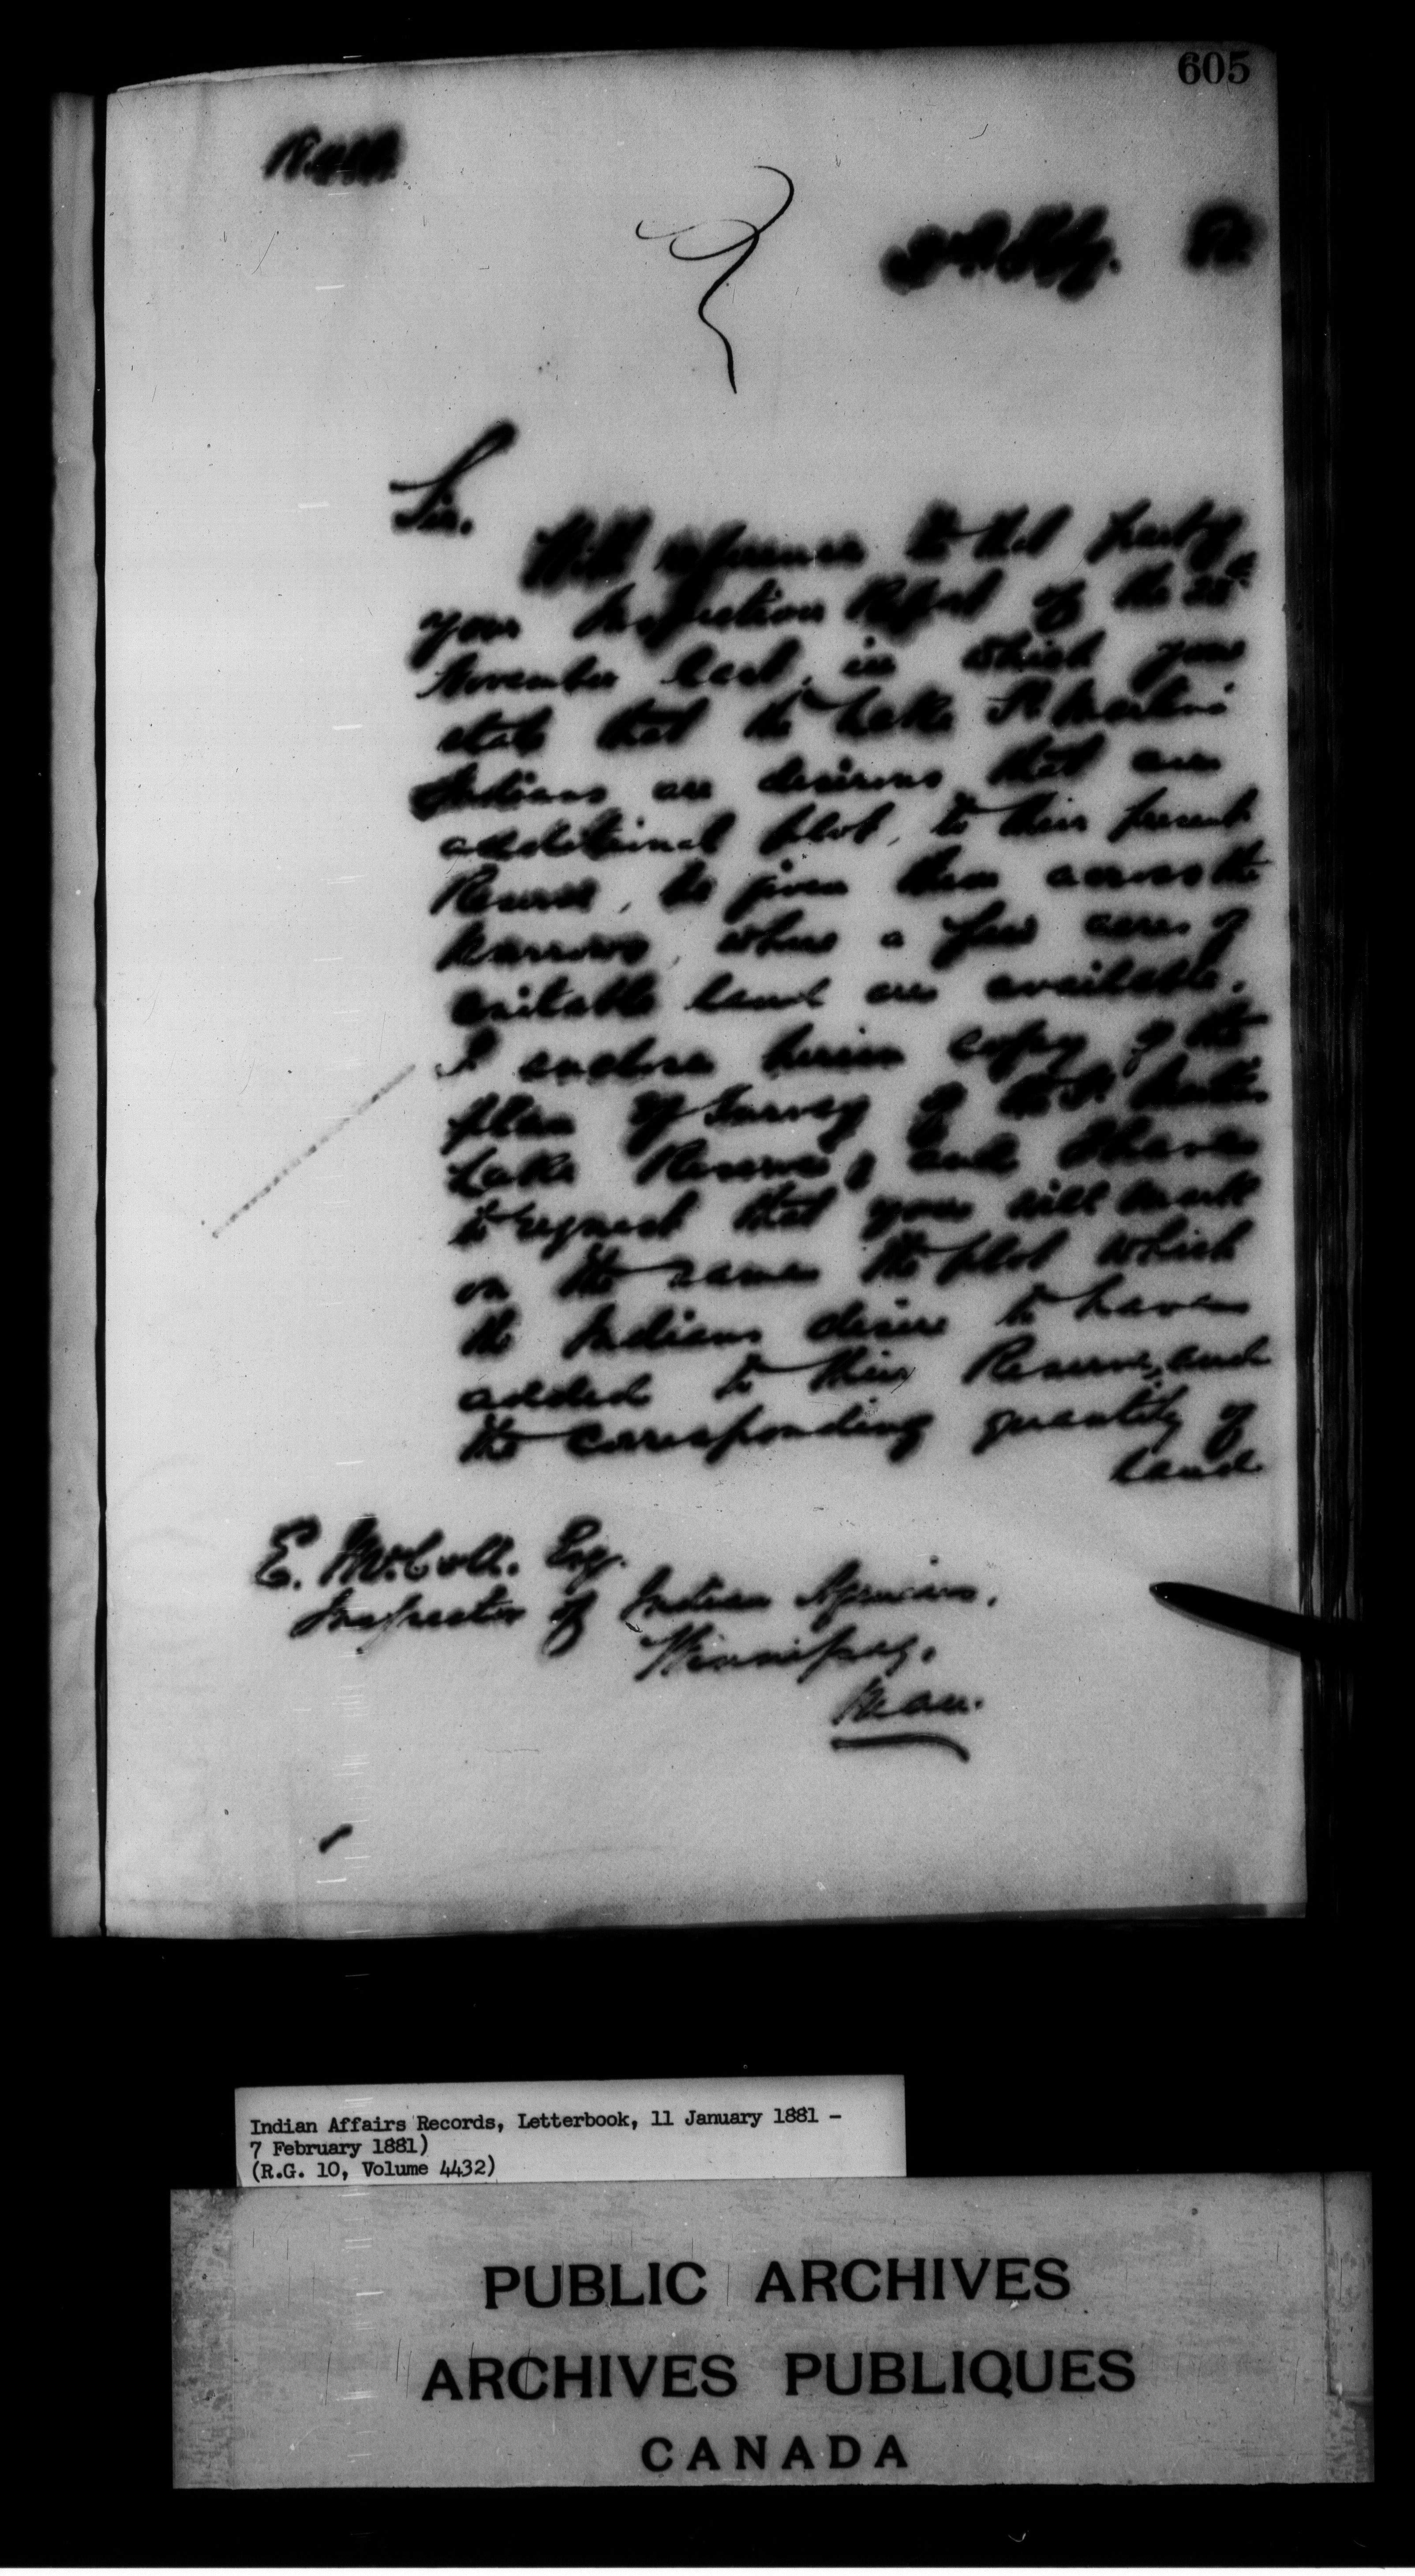 605
Sir.
With reference to that part of
your Inspection Report of the 28th
November last, in which you
state that the Lake St Martin's
Indians are desirous that an
additional plot, to their present
Reserve, be given them across the
Narrows, where a few acres of
suitable land are available.
I enclose herein copy of the
plan of Survey of the St Martin's
Lake Reserve, and I have
to request that you will mark
on the same the plot which
the Indians desire to have
added to their Reserve, and
the corresponding quantity of
land
E. McColl. Esq.
Inspector of Indian Agencies.
Winnipeg.
Man.
Indian Affairs Records, Letterbook, 11 January 1881 -
7 February 1881)
(R.G. 10, Volume 4432)
PUBLIC ARCHIVES
ARCHIVES PUBLIQUES
CANADA